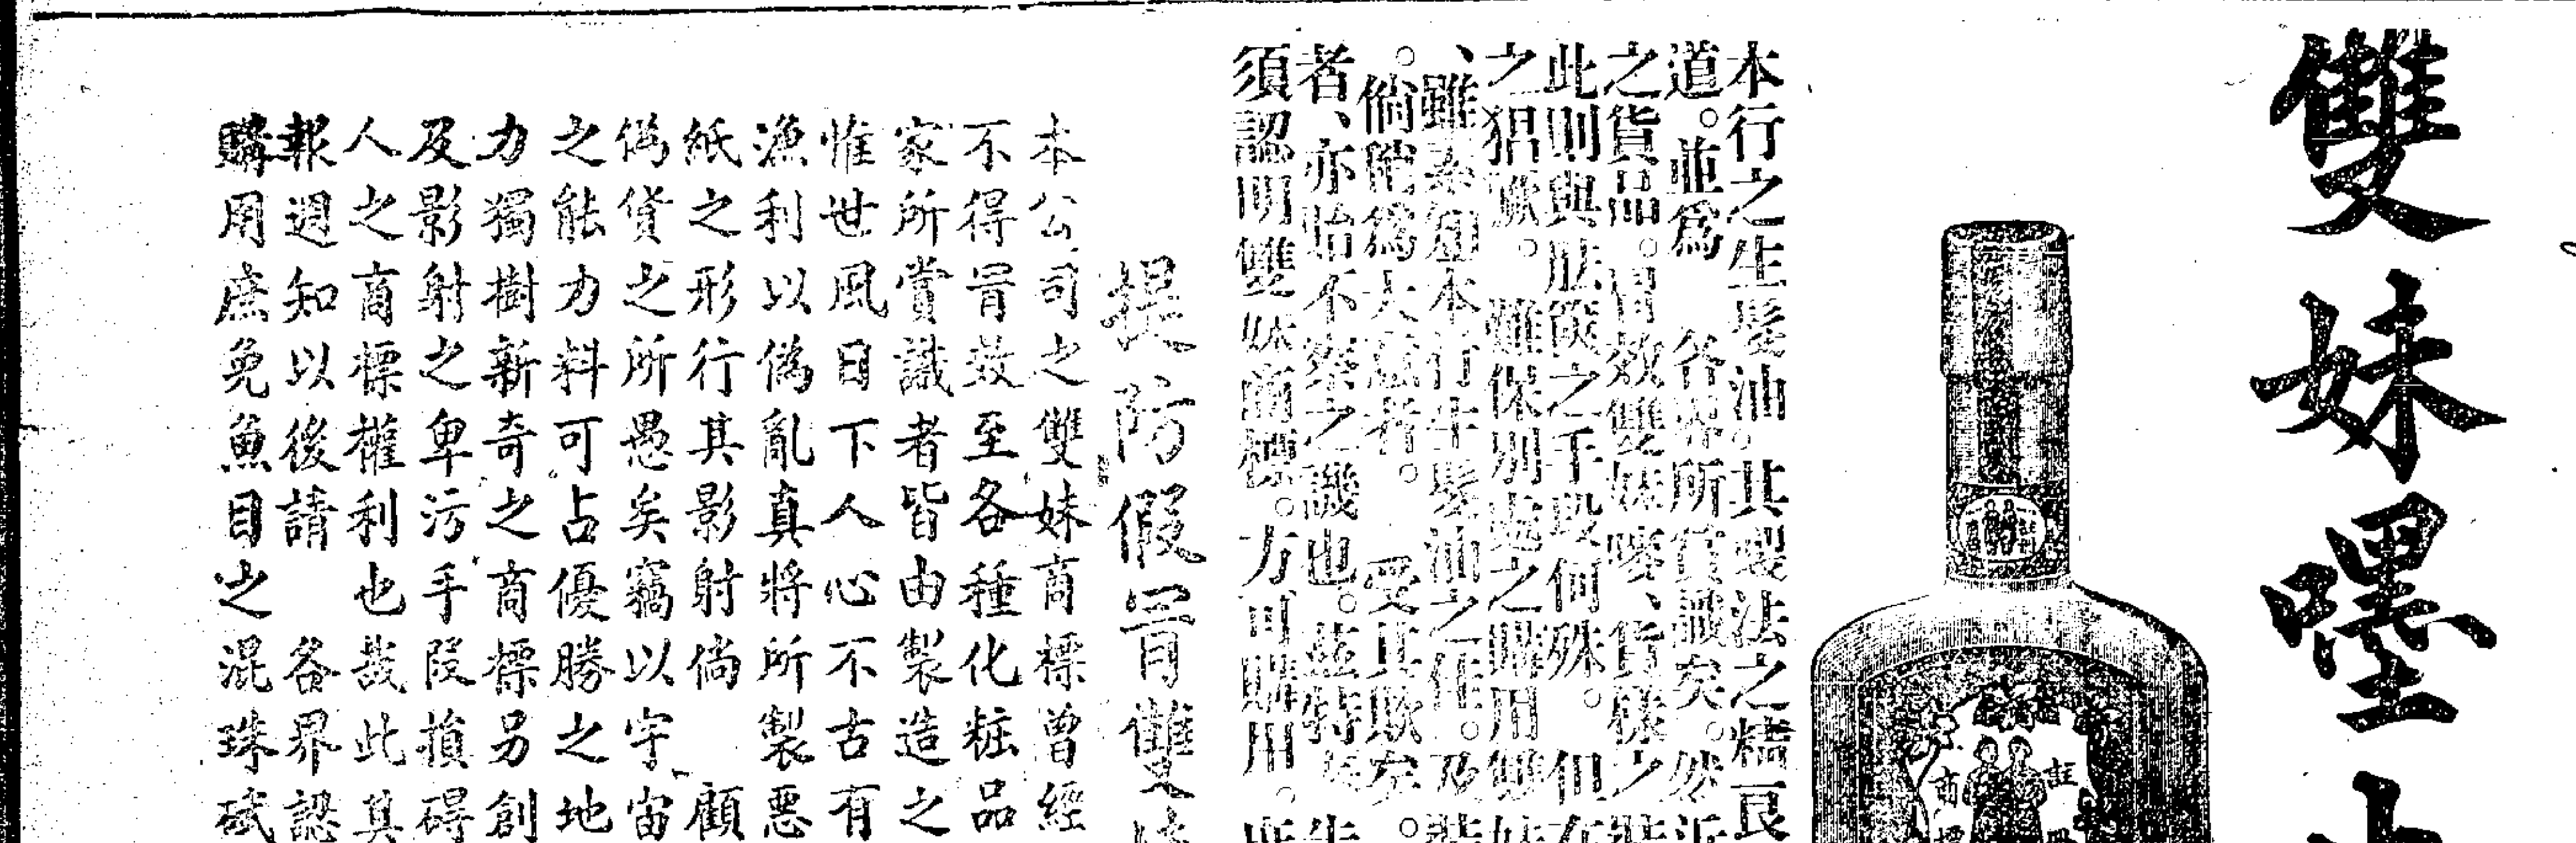 雙妹嚜
註
商標
本行之生髮油。其製法之精良
道。並爲 各界所賞識矣。然近
之貨品。冒效雙妹嚜、貨樣之裝
此則與胠篋之手段何殊。 但在
之猖獗。 難保別處之購用雙妹
、雖素知本行生髮油之佳。乃裝
。倘偶爲大意者。 受其欺矣。
者、亦貽不察之譏也。茲特
須認明雙妹商標。方可購用。庶
提防假冒雙妹
本公司之雙妹商標曾經
不得冒效至各種化粧品
家所賞識者皆由製造之
惟世風日下人心不古有
漁利以偽亂真將所製惡
紙之形行其影射倘 顧
偽貨之所愚矣竊以宇宙
之能力料可占優勝之地
力獨樹新奇之商標另創
及影射之卑污手段損碍
人之商標權利也哉此其
報週知以後請 各界認
購用庶免魚目之混珠碔